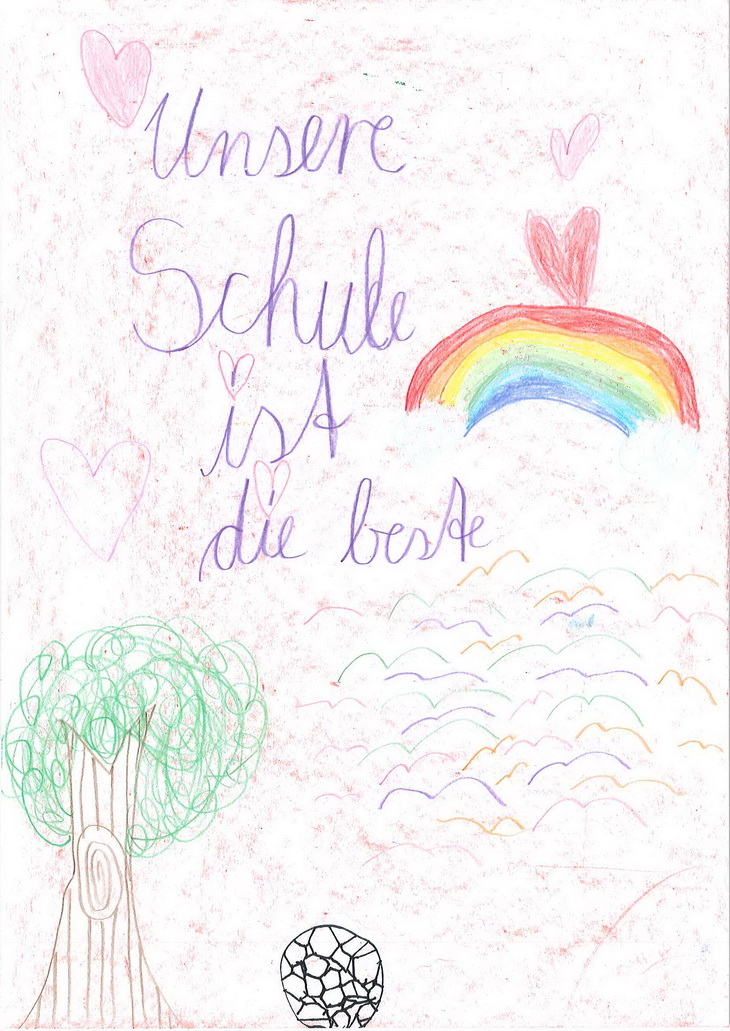 Unsere
Schule
ist
die beste